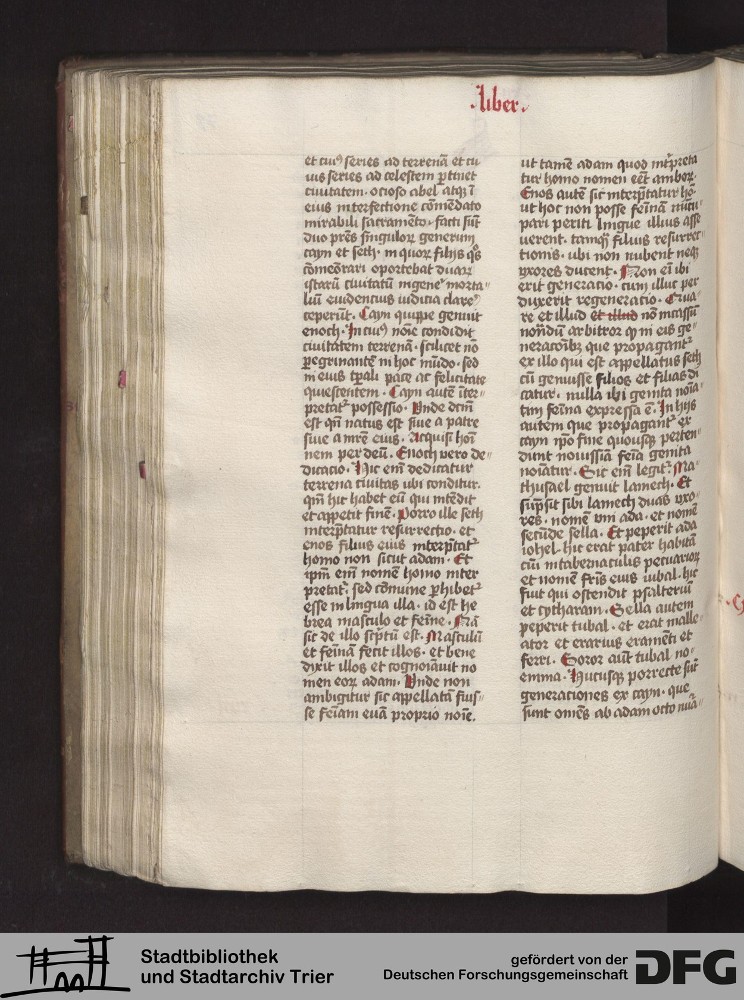 .liber.
et cuiꝰ series ad terrenā et cu
ius series ad celestem ꝑtinet
ciuitatem. ociso abel atqꝫ ī
eius interfectione cōmēdato
mirabili sacramēto. facti sūt
duo pr̄es singuloꝝ generum
cayn et seth. in quoꝝ filijs q̊s
cōmeōrari oportebat duaꝝ
istarū ciuitatū in gene᷑ morta
liū euidencius iudicia clare᷑
ceperūt. Cayn quippe genuit
enoch. In cuiꝰ nōie condidit
ciuitatem terrenā. scilicet nō
ꝑegrinantē in hoc mūdo. sed
in eius tꝑali pace ac felicitate
quiescentem. Cayn autē īter
pretatᷣ possessio. Vnde dcm̄
est qn̄ natus est siue a patre
siue a mr̄e eius. Acquisi hoī
nem per deū. Enoch vero de
dicatio. Hic em̄ dedicatur
terrena ciuitas vbi conditur.
qm̄ hic habet eū qui intēdit
et appetit finē. Porro ille seth
interp̄tatur resurrectio. et
enos filius eius interp̄tatᷣ
homo non sicut adam. Et
ip̄m em̄ nomē homo inter
pretatᷣ. sed cōmune ꝑhibetᷣ
esse in lingua illa. id est he
brea masculo et feīne. Nā
sic de illo sc̄ptū est. Masculū
et feīnā fecit illos. et bene
dixit illos et cognoīauit no
men eoꝝ adam. Vnde non
ambigitur sic appellatā fuis
se feīam euā proprio noīe.
ut tamē adam quod int̄preta
tur homo nomen eēt amboꝝ.
Enos autē sic interp̄tatur hō.
ut hoc non posse feīnā nūcu
pari periti lingue illius asse
uerent. tamqꝫ filius resurrec
tionis. ubi non nubent neqꝫ
vxores ducent. Non eī ibi
erit generacio. cum illuc per
duxerit regeneracio. Qua
re et illud et illud nō incassū
nōndū arbitror ꝙ in eis ge
neracōibꝫ que propagantᷣ
ex illo qui est appellatus seth
cū genuisse filios et filias di
catur. nulla ibi genita noīa
tim feīna expressa ē. In hijs
autem que propagantᷣ ex
cayn ip̄o fine quousqꝫ perten
dunt nouissīa feīa genita
noīatur. Sic em̄ legitᷣ. Ma
thusael genuit lamech. Et
sūp̄sit sibi lamech duas vxo
res. nomē vni ada. et nomē
secūde sella. Et peperit ada
iobel. hic erat pater habitā
ciū in tabernaculis pecuarioꝝ
et nomē fr̄is eius iubal. hic
fuit qui ostendit psalteriū
et cytharam. Sella autem
peperit tubal. et erat malle
ator et erarius eramēti et
ferri. Soror aūt tubal no
emma. Hucusqꝫ porrecte sūt
generaciones ex cayn. que
sunt om̄es ab adam octo
Stadtbibliothek
und Stadtarchiv Trier
gefördert von der
Deutschen Forschungsgemeinschaft
DFG